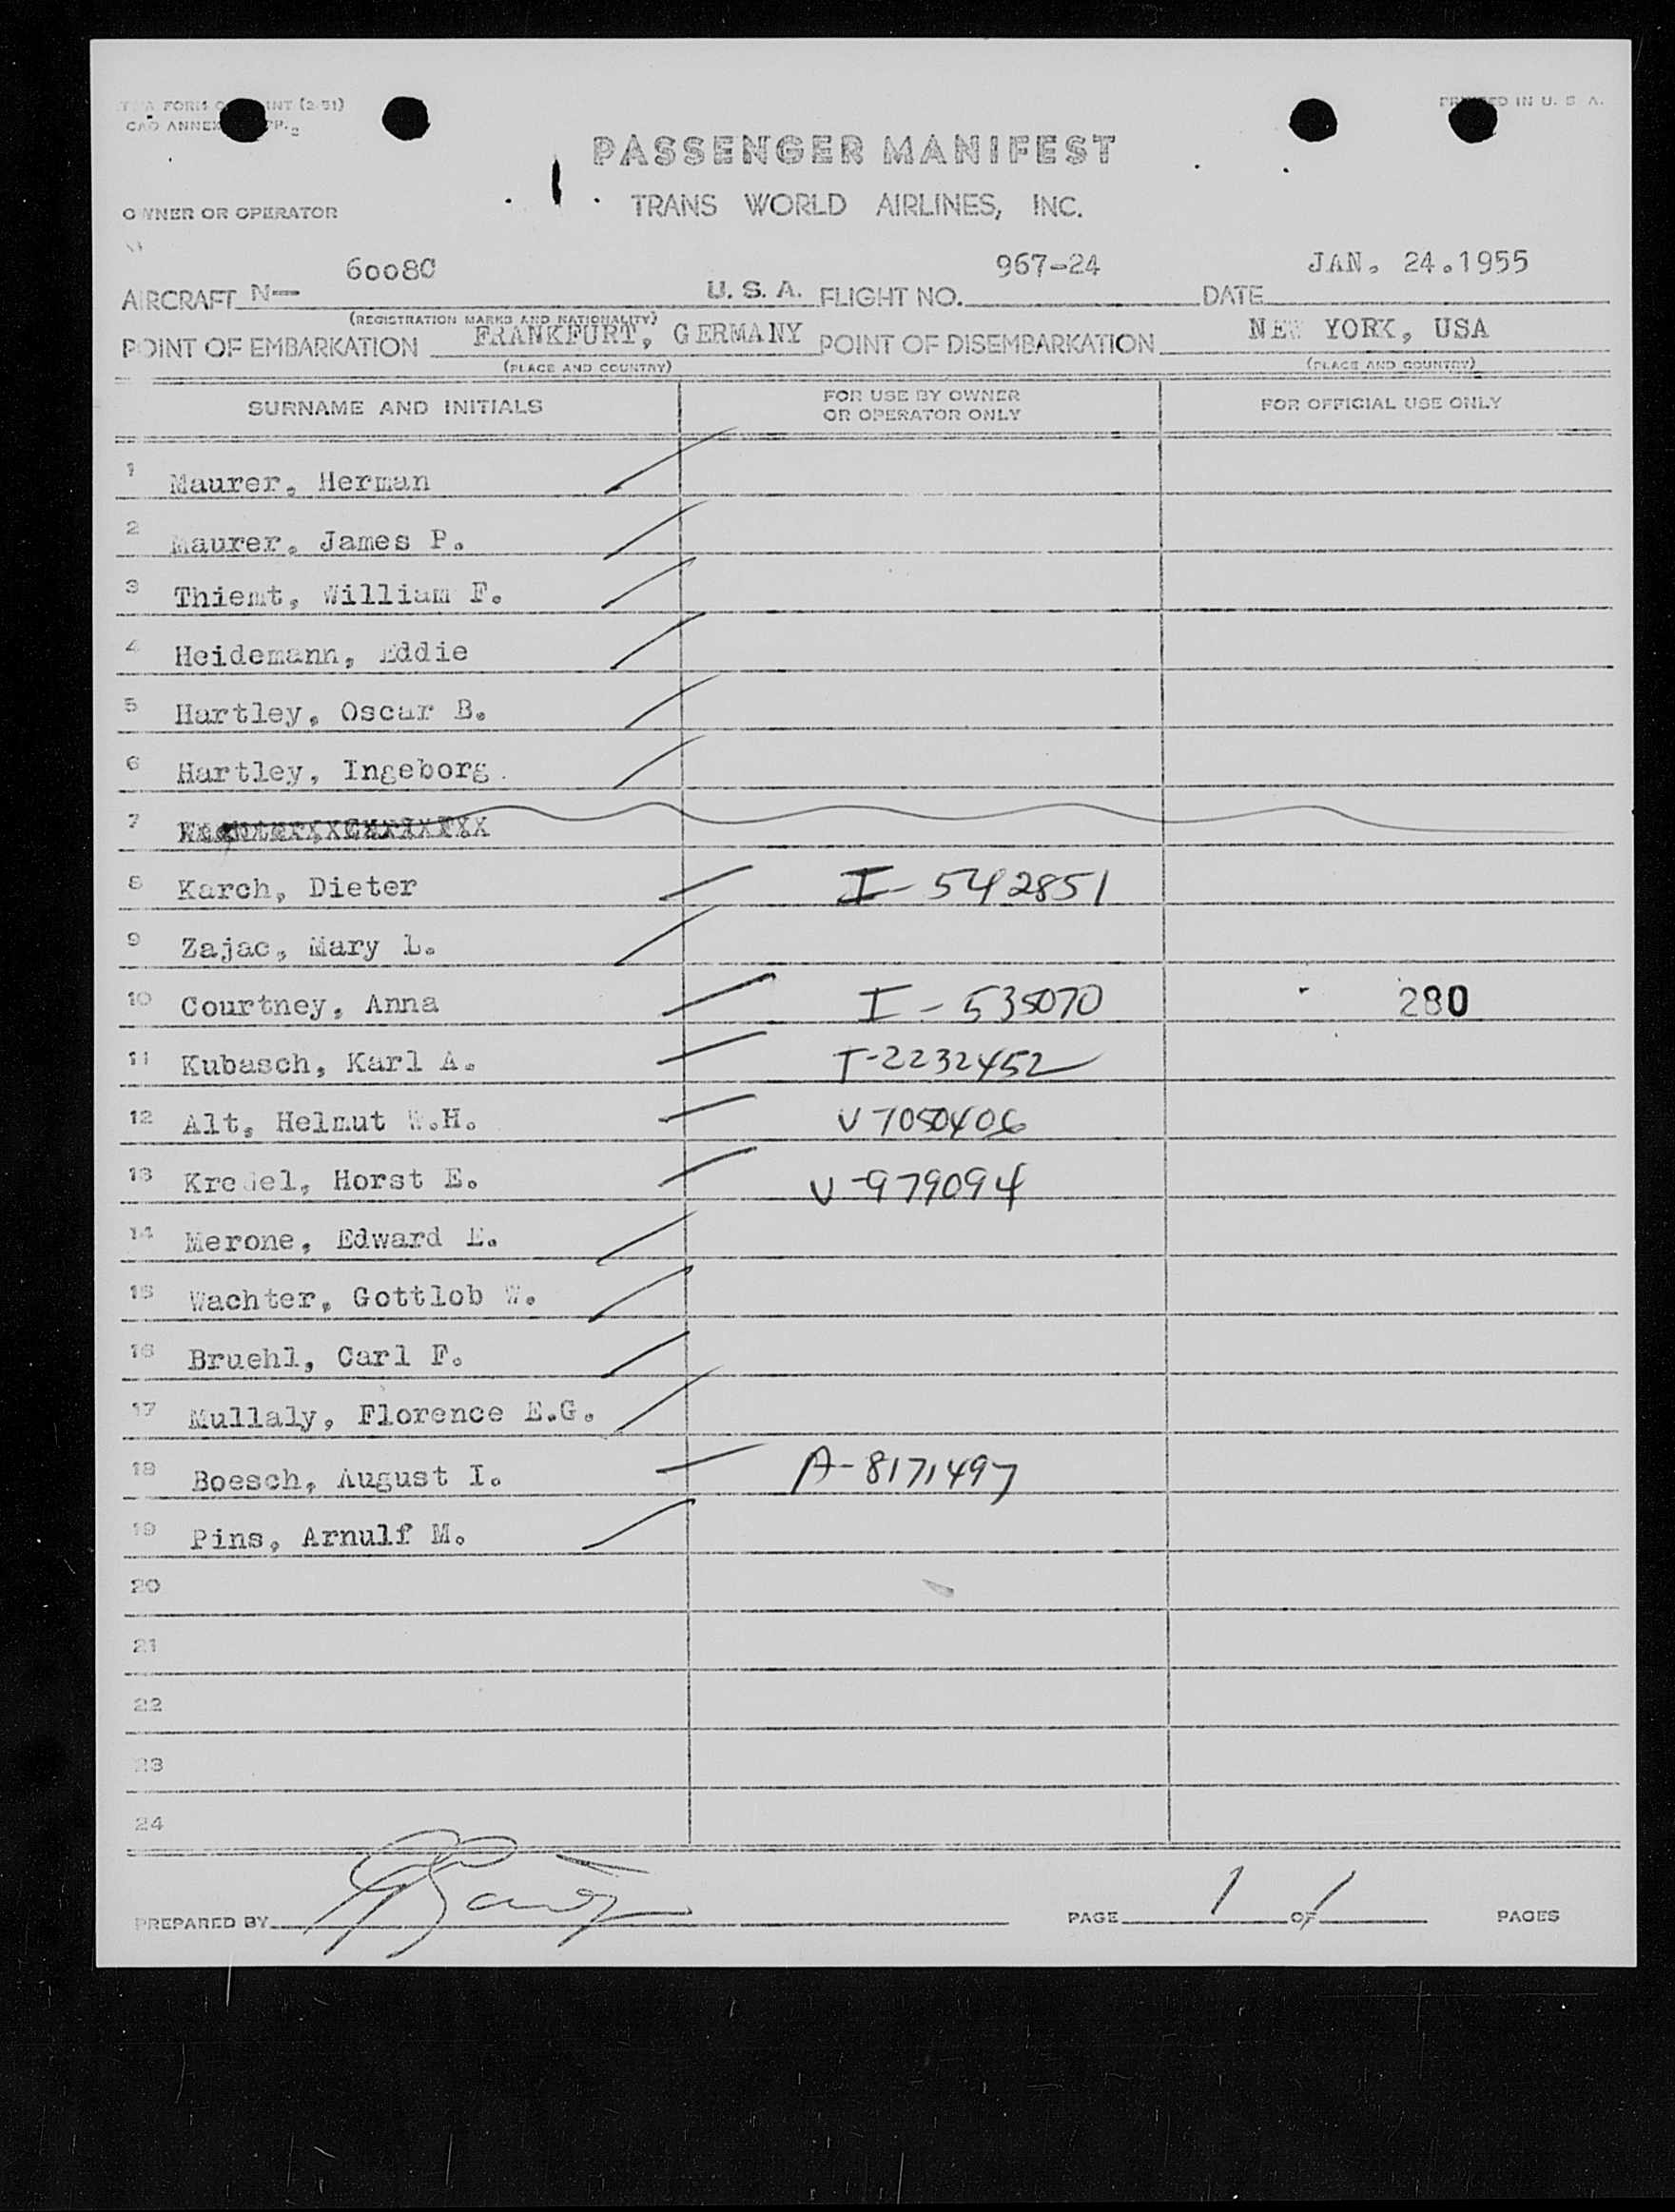 PRINTED IN U. S. A.
PASSENGER MANIFEST
TRANS WORLD AIRLINES, INC.
OWNER OR OPERATOR
AIRCRAFT N— 6008C U. S. A. FLIGHT NO. 967-24 DATE JAN. 24.1955
(REGISTRATION MARKS AND NATIONALITY)
POINT OF EMBARKATION FRANKFURT, GERMANY POINT OF DISEMBARKATION NEW YORK, USA
(PLACE AND COUNTRY) (PLACE AND COUNTRY)
SURNAME AND INITIALS FOR USE BY OWNER OR OPERATOR ONLY FOR OFFICIAL USE ONLY
1 Maurer, Herman
2 Maurer, James P.
3 Thiemt, William F.
4 Heidemann, Eddie
5 Hartley, Oscar B.
6 Hartley, Ingeborg
7
8 Karch, Dieter I-542851
9 Zajac, Mary L.
10 Courtney, Anna I-535070 280
11 Kubasch, Karl A. T-2232452
12 Alt, Helmut W.H. V7050406
13 Kredel, Horst E. V-979094
14 Merone, Edward E.
15 Wachter, Gottlob W.
16 Bruehl, Carl F.
17 Mullaly, Florence E.G.
18 Boesch, August I. A-8171497
19 Pins, Arnulf M.
20
21
22
23
24
PREPARED BY PAGE 1 OF 1 PAGES